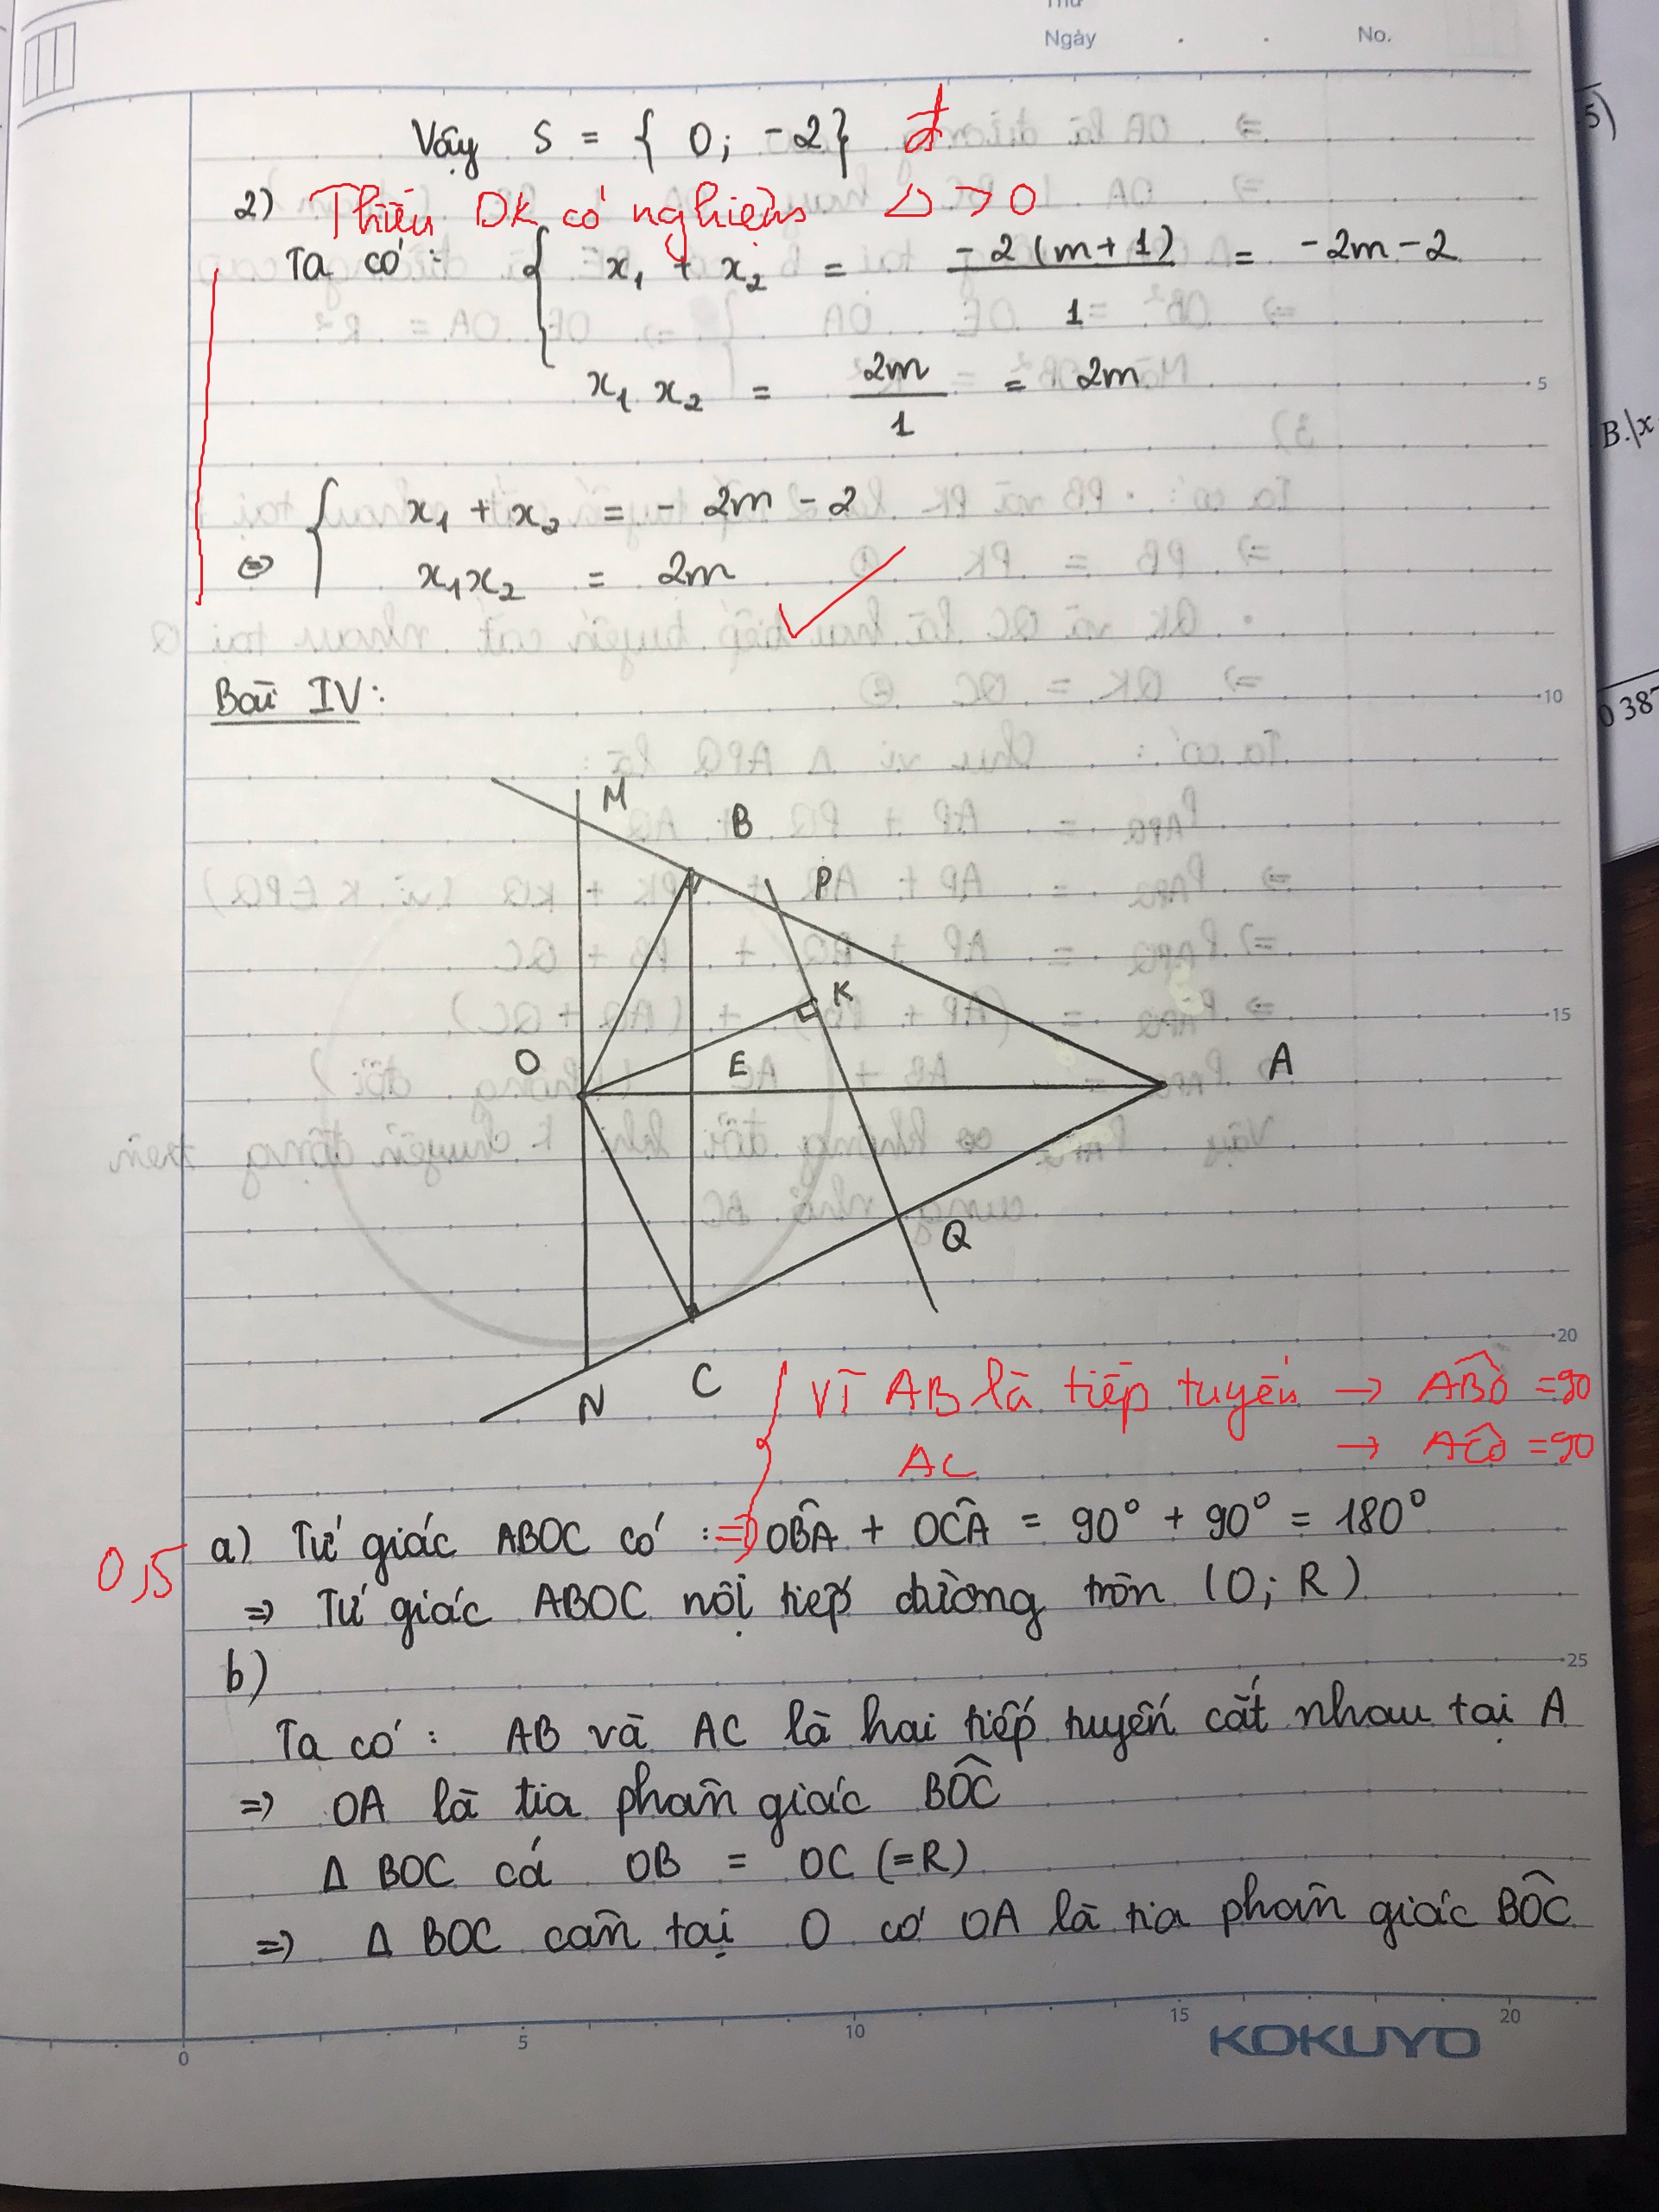 Thứ
Ngày . . No.
Vậy S = { 0; -2} đ
2) Thiếu DK có nghiệm Δ > 0
Ta có: { x₁ + x₂ = -2(m+1)/1 = -2m - 2
x₁ x₂ = 2m/1 = 2m
⇔ { x₁ + x₂ = - 2m - 2
x₁x₂ = 2m
Bài IV:
M
B
P
K
O
E
A
Q
N
C
{ Vì AB là tiếp tuyến → ABO = 90
AC → ACO = 90
0,5 a) Tứ giác ABOC có : => OBA + OCA = 90° + 90° = 180°
=> Tứ giác ABOC nội tiếp đường tròn (O; R)
b)
Ta có: AB và AC là hai tiếp tuyến cắt nhau tại A
=> OA là tia phân giác BOC
Δ BOC có OB = OC (=R)
=> Δ BOC cân tại O có OA là tia phân giác BOC
5
10
15
20
25
0 5 10 15 20
KOKUYO
5)
B.|x
0 387